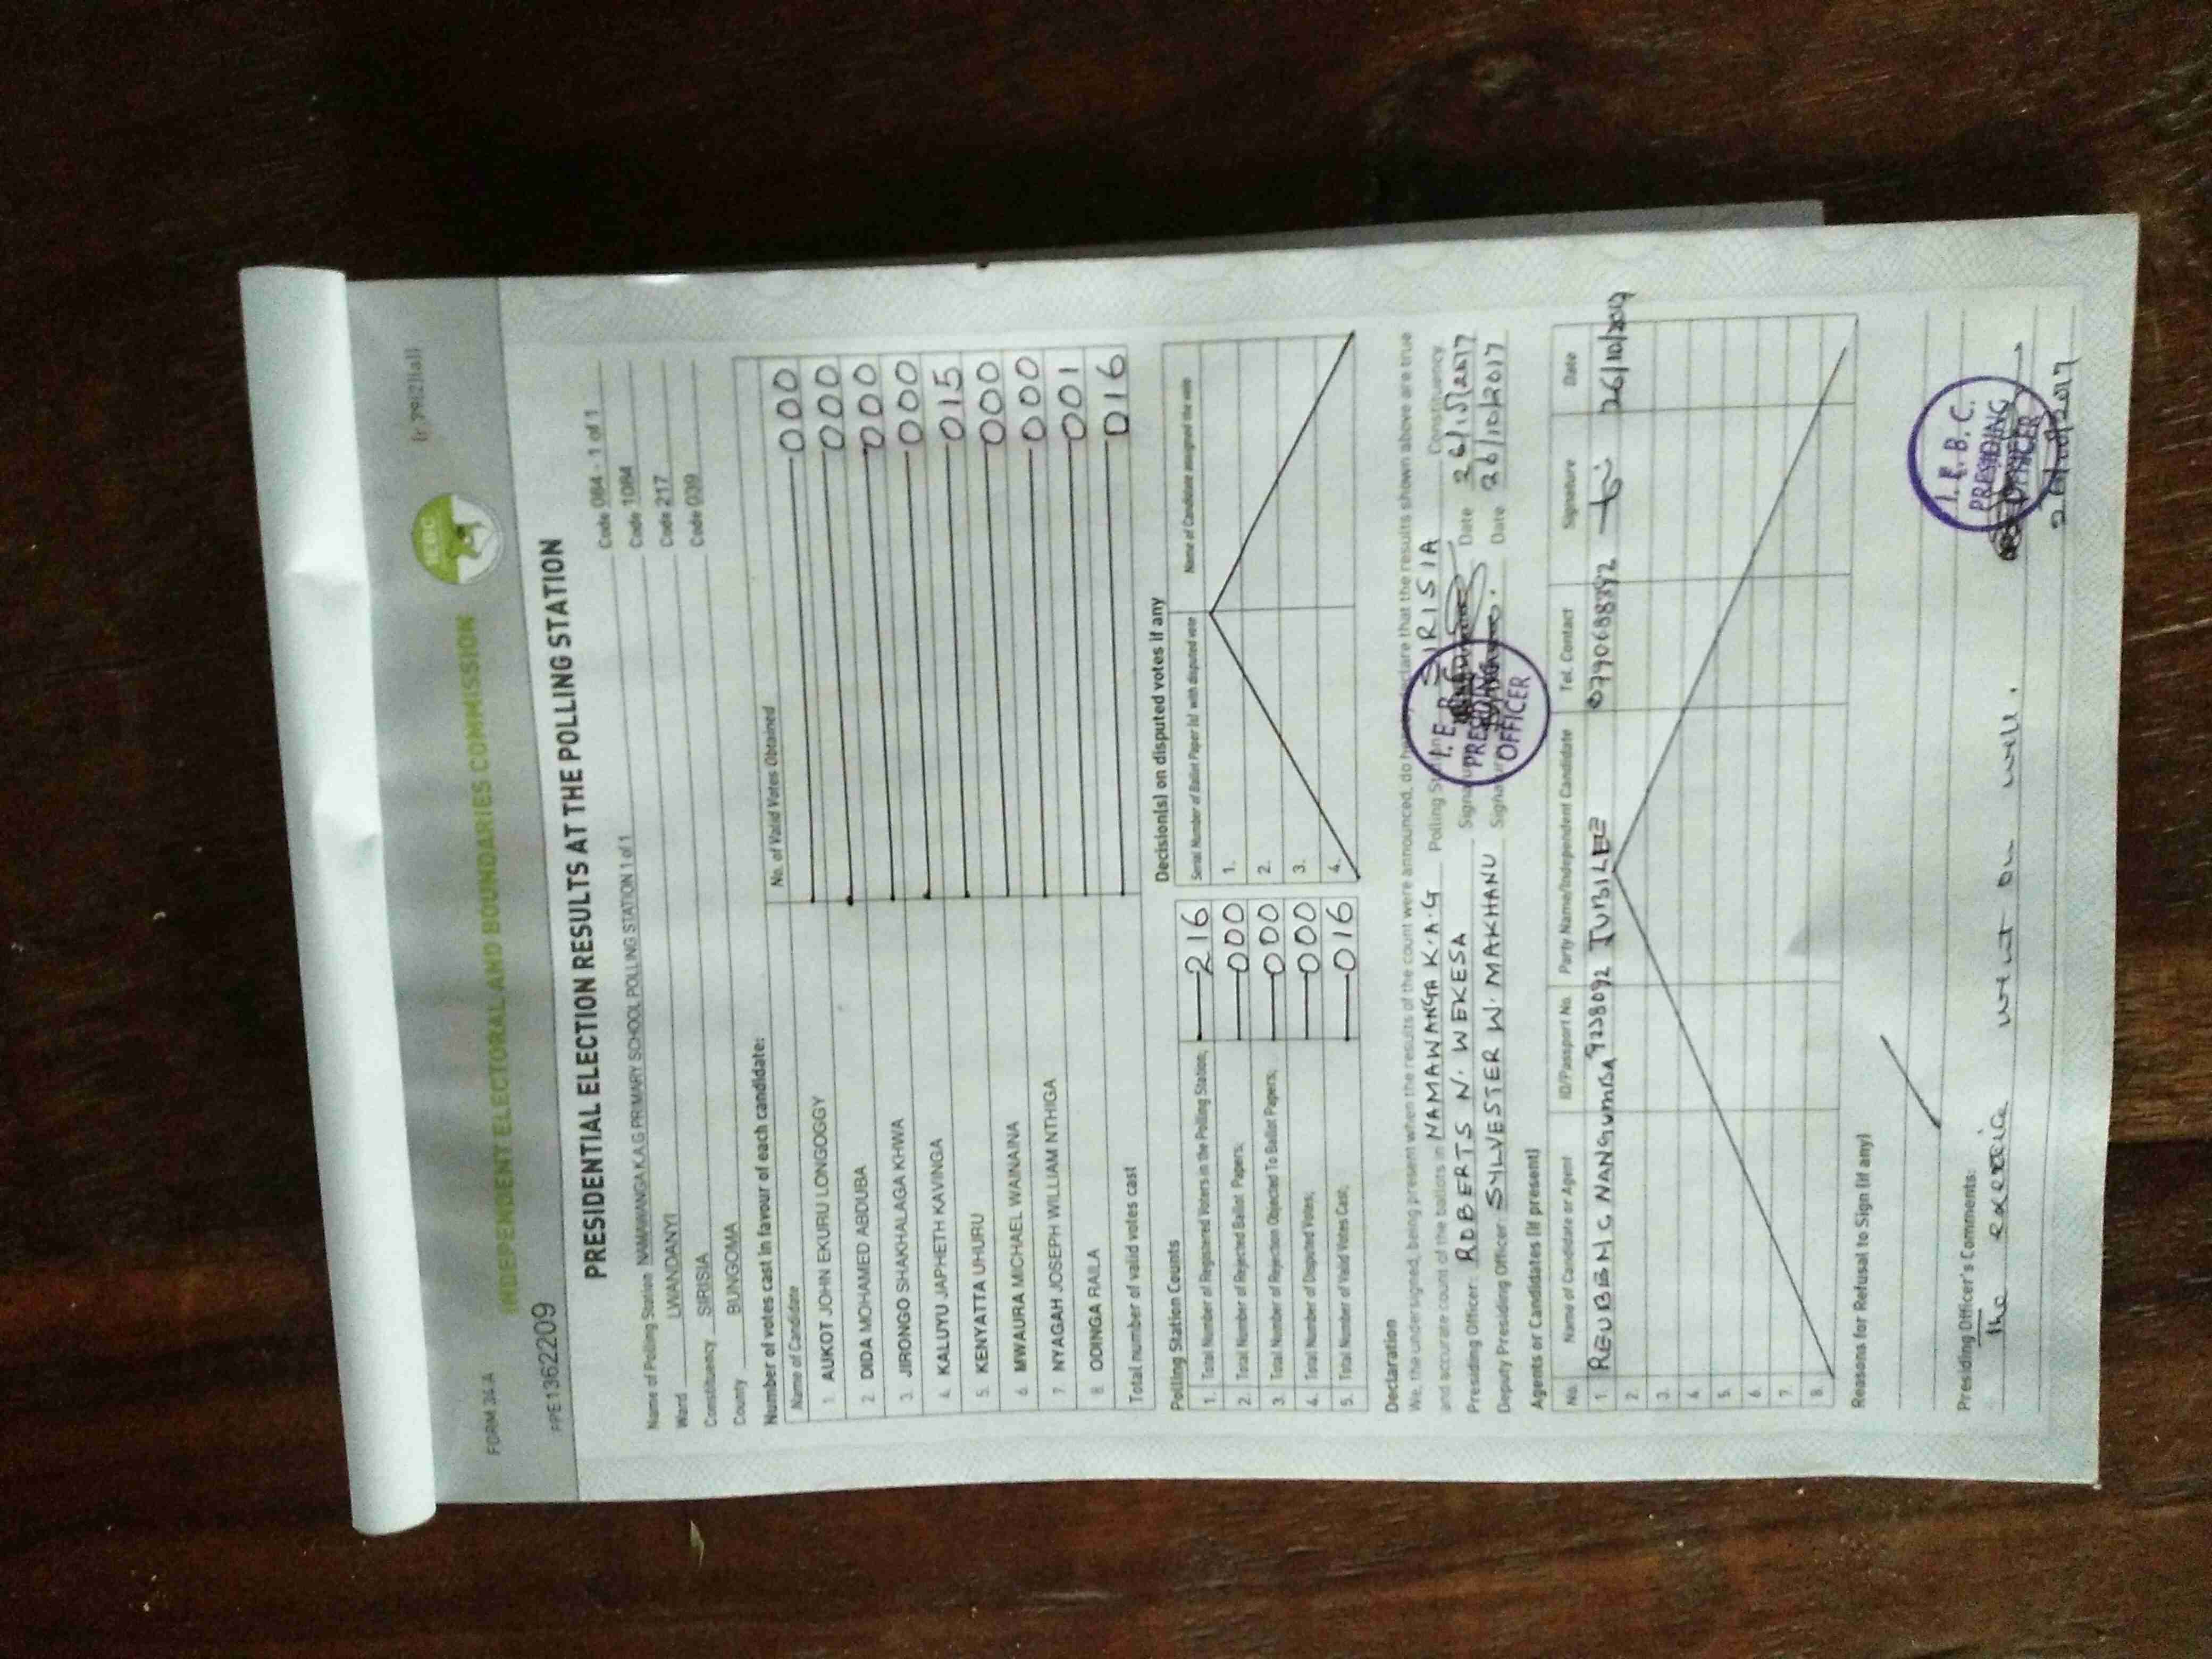 FORM 34A
INDEPENDENT ELECTORAL AND BOUNDARIES COMMISSION
IEBC
(r. 79(2)(a))
PPE1362209
PRESIDENTIAL ELECTION RESULTS AT THE POLLING STATION
Name of Polling Station NAMAWANGA K.A.G PRIMARY SCHOOL POLLING STATION 1 of 1 Code 084 - 1 of 1
Ward LWANDANYI Code 1084
Constituency SIRISIA Code 217
County BUNGOMA Code 039
Number of votes cast in favour of each candidate:
Name of Candidate No. of Valid Votes Obtained
1. AUKOT JOHN EKURU LONGOGGY 000
2. DIDA MOHAMED ABDUBA 000
3. JIRONGO SHAKHALAGA KHWA 000
4. KALUYU JAPHETH KAVINGA 000
5. KENYATTA UHURU 015
6. MWAURA MICHAEL WAINAINA 000
7. NYAGAH JOSEPH WILLIAM NTHIGA 000
8. ODINGA RAILA 001
Total number of valid votes cast 016
Polling Station Counts
1. Total Number of Registered Voters in the Polling Station; 216
2. Total Number of Rejected Ballot Papers; 000
3. Total Number of Rejection Objected To Ballot Papers; 000
4. Total Number of Disputed Votes; 000
5. Total Number of Valid Votes Cast; 016
Decision(s) on disputed votes if any
Serial Number of Ballot Paper (s) with disputed vote Name of Candidate assigned the vote
1.
2.
3.
4.
Declaration
We, the undersigned, being present when the results of the count were announced, do hereby declare that the results shown above are true
and accurate count of the ballots in NAMAWANGA K.A.G Polling Station SIRISIA Constituency
Presiding Officer: ROBERTS N. WEKESA Signature Date 26/10/2017
Deputy Presiding Officer SYLVESTER W. MAKHANU Signature Date 26/10/2017
I. E. B. C.
PRESIDING
OFFICER
Agents or Candidates (if present)
No. Name of Candidate or Agent ID/Passport No. Party Name/Independent Candidate Tel. Contact Signature Date
1. NANGUMBA 9238092 JUBILEE 0790688392 26/10/2017
2.
3.
4.
5.
6.
7.
8.
Reasons for Refusal to Sign (if any)
Presiding Officer's Comments:
The went on well.
I. E. B. C.
PRESIDING
OFFICER
26/10/2017